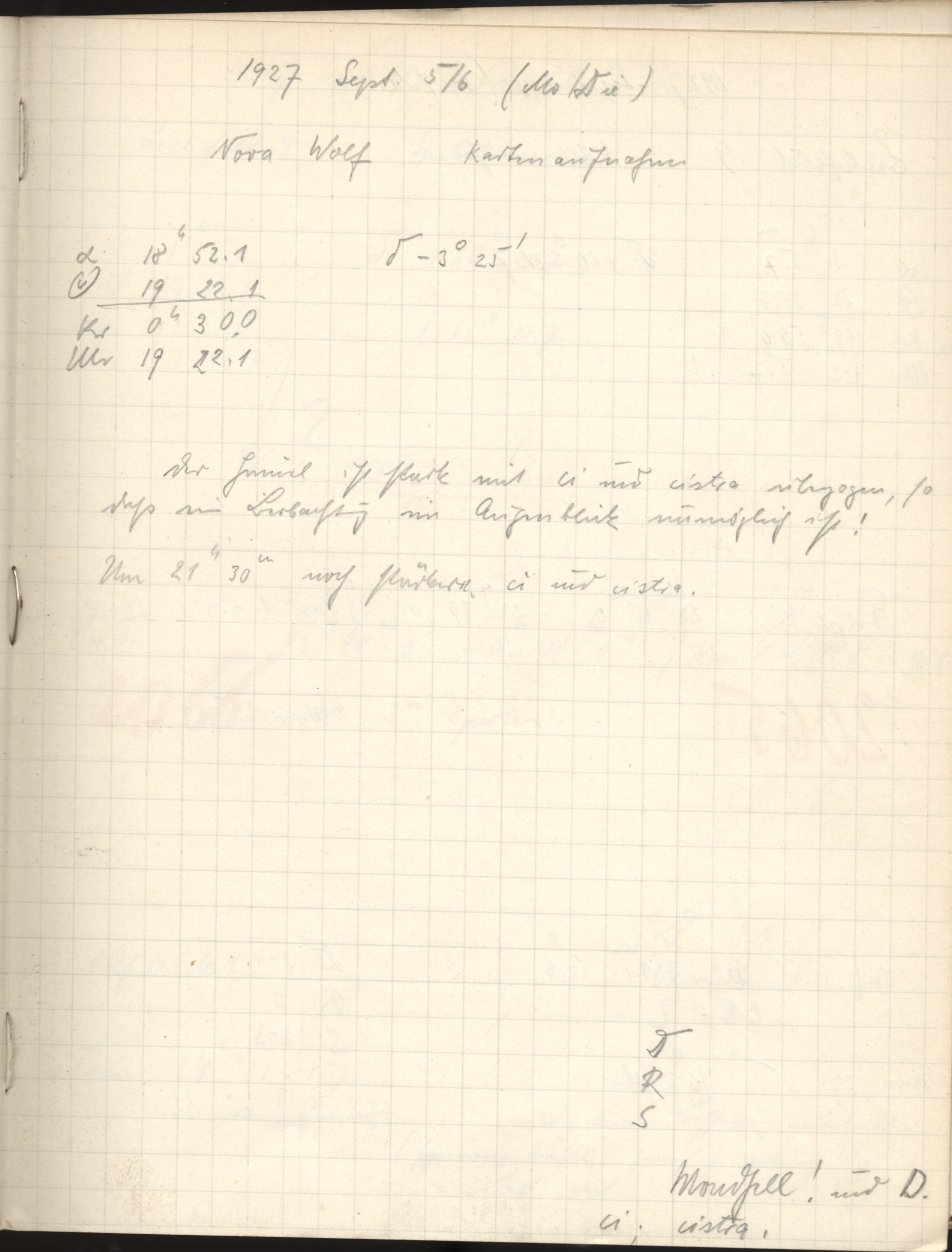 1927 Sept. 5/6 (Mo/Die)
Nova Wolf Kartenaufnahmen
α 18ʰ 52.1 δ -3° 25'
19 22.1
0ʰ 30.0
Uhr 19 22.1
Der Himmel ist stark mit ci und cistra überzogen, so
daß eine Beobachtung im Augenblick unmöglich ist!
Um 21ʰ 30ᵐ noch stärkere ci und cistra.
D
R
S
Mondhell! und D.
ci; cistra.